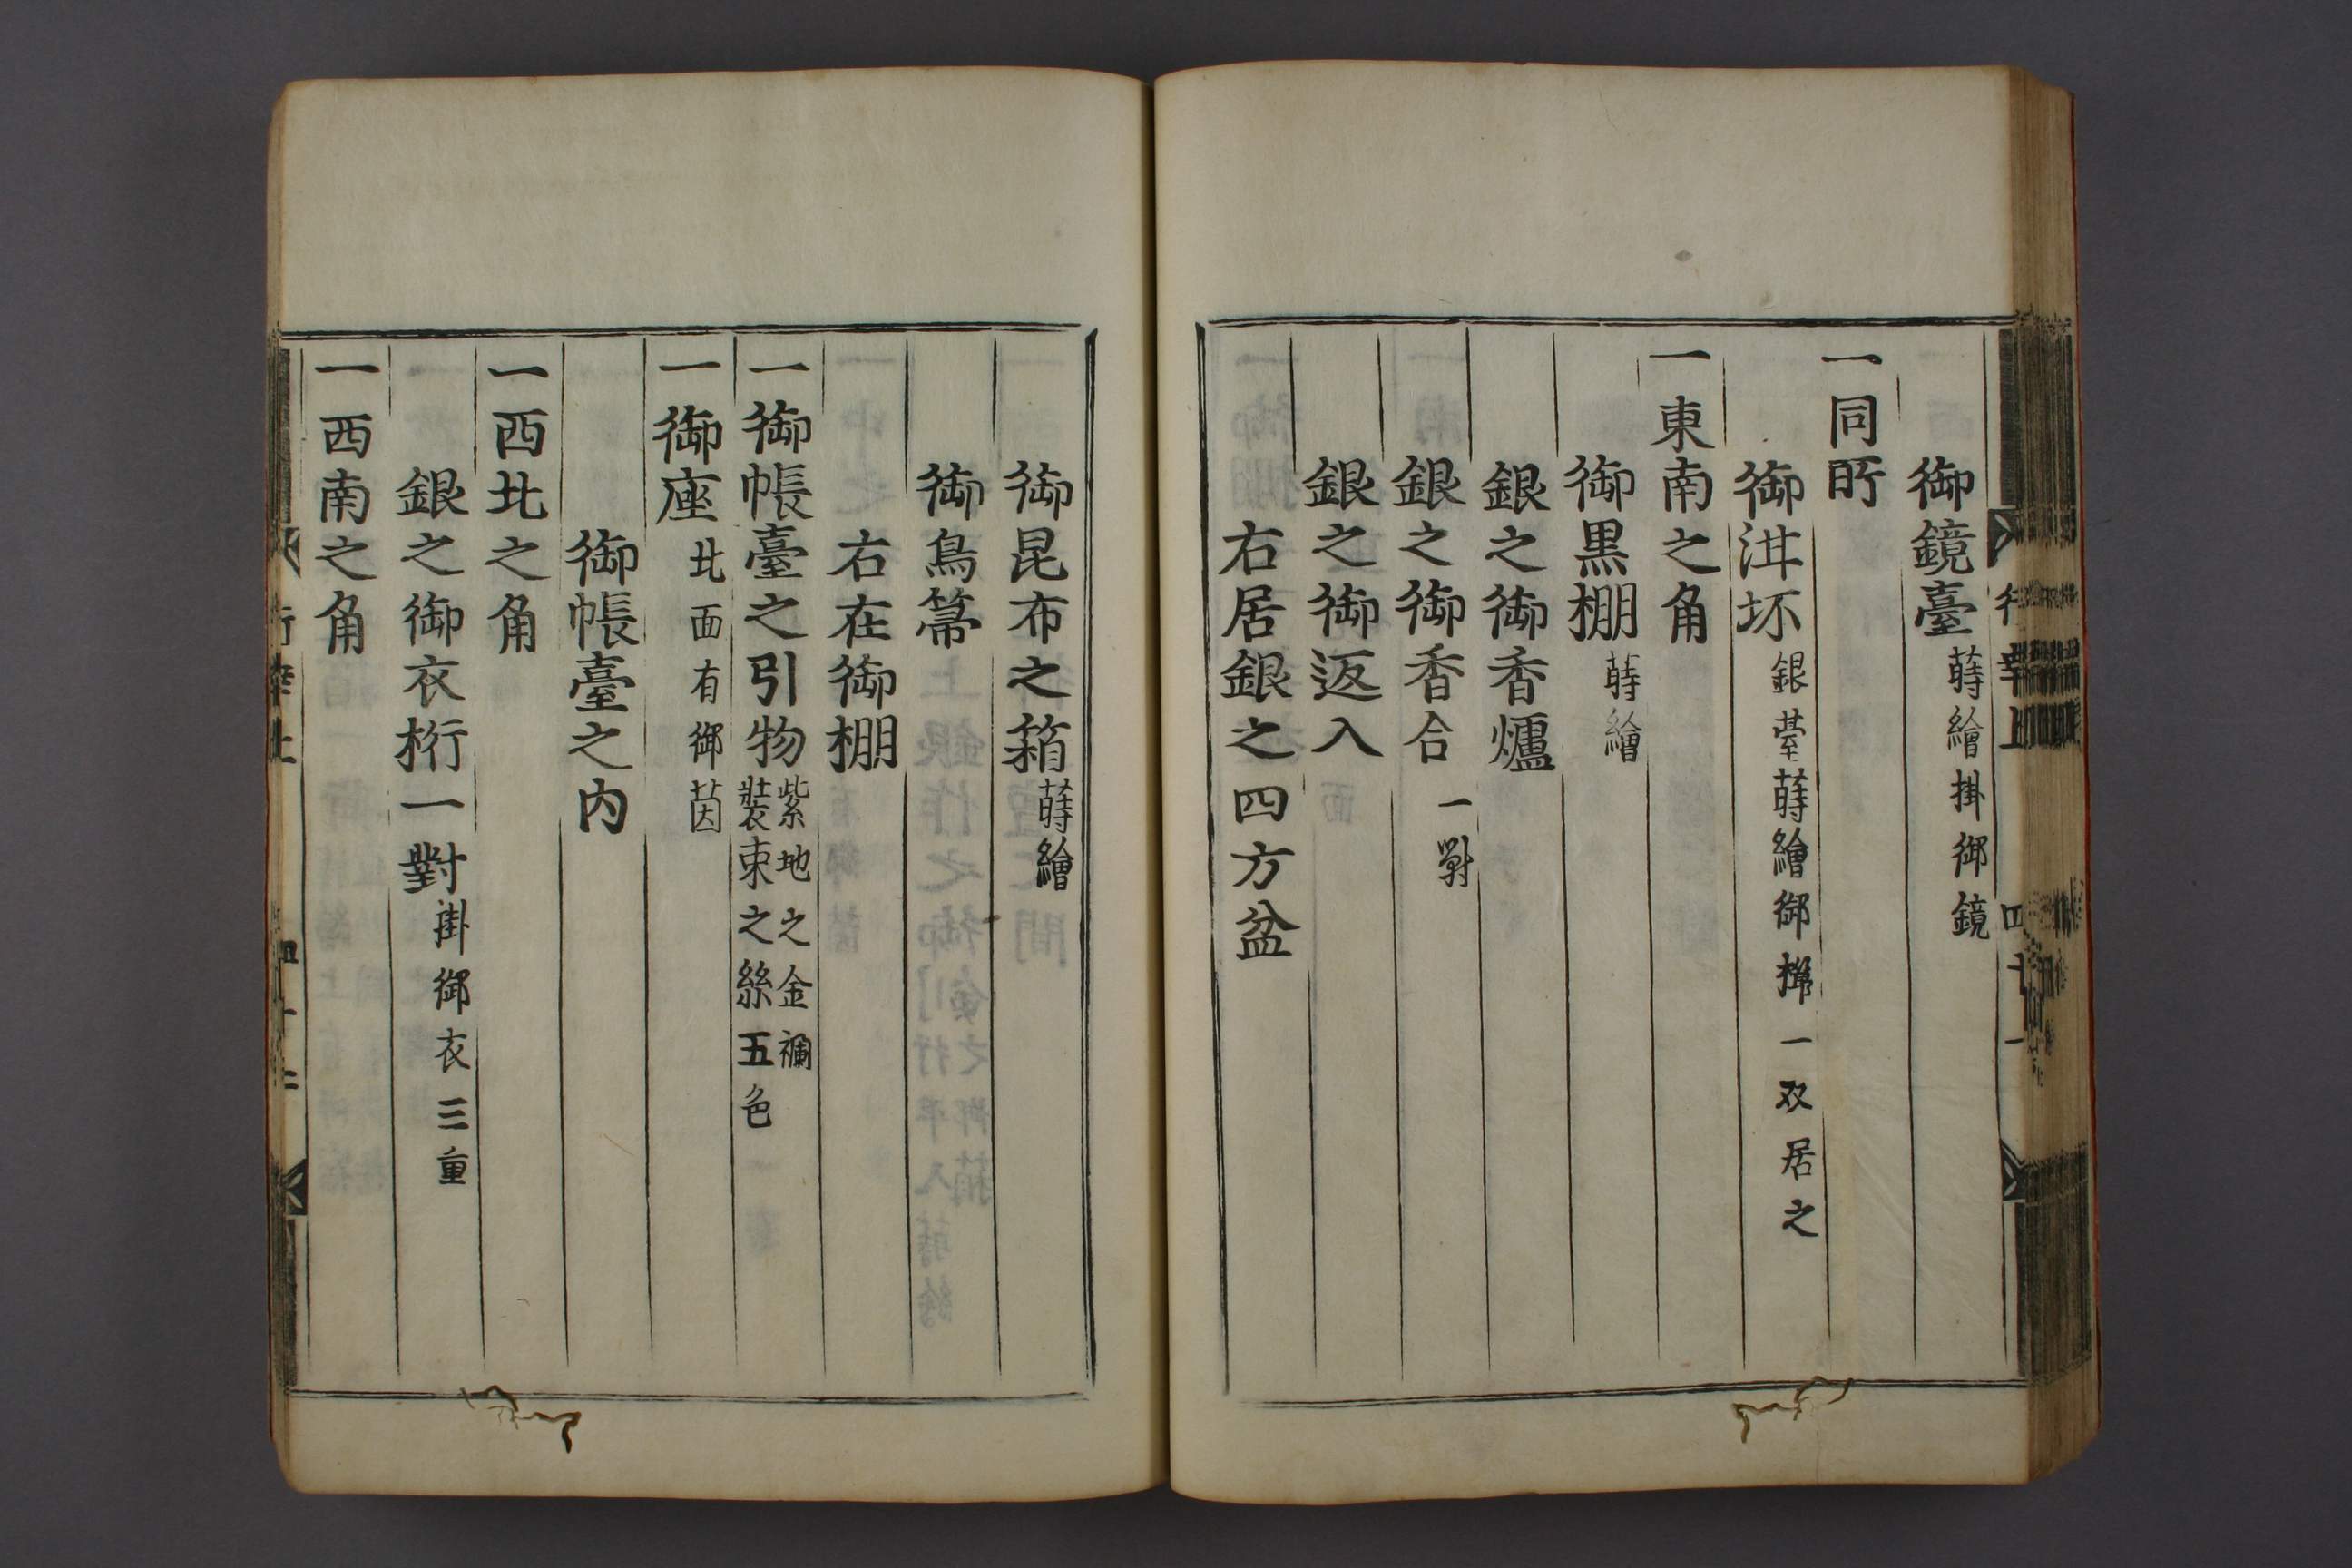 御鏡臺 蒔繪掛御鏡
一同所
御泔坏 銀薹蒔繪御 一双居之
一東南之角
御黒棚 蒔繪
銀之御香爐
銀之御香合 一對
銀之御返入
右居銀之四方盆
御昆布之箱 蒔繪
御鳥箒
右在御棚
一御帳臺之引物 紫地之金襴
裝束之絲五色
一御座 北面有御茵
御帳臺之内
一西北之角
銀之御衣桁一對 掛御衣三重
一西南之角
行幸上 四十一